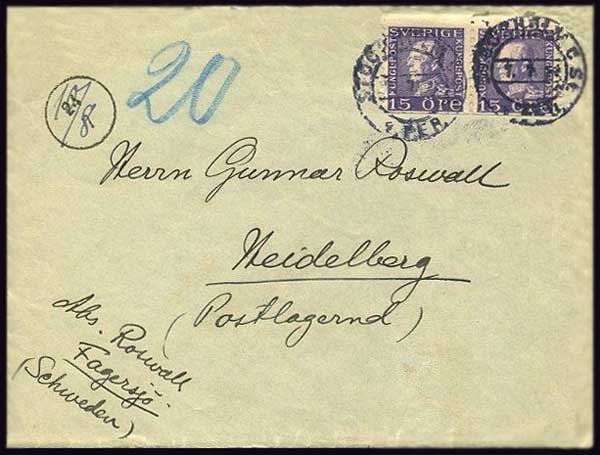 SVERIGE
KUNGSPOST KUNGSPOST
15 ÖRE
15
20
Herrn Gunnar Roswall
Heidelberg
(Postlagernd)
Abs. Roswall
Fagersjö.
(Schweden)